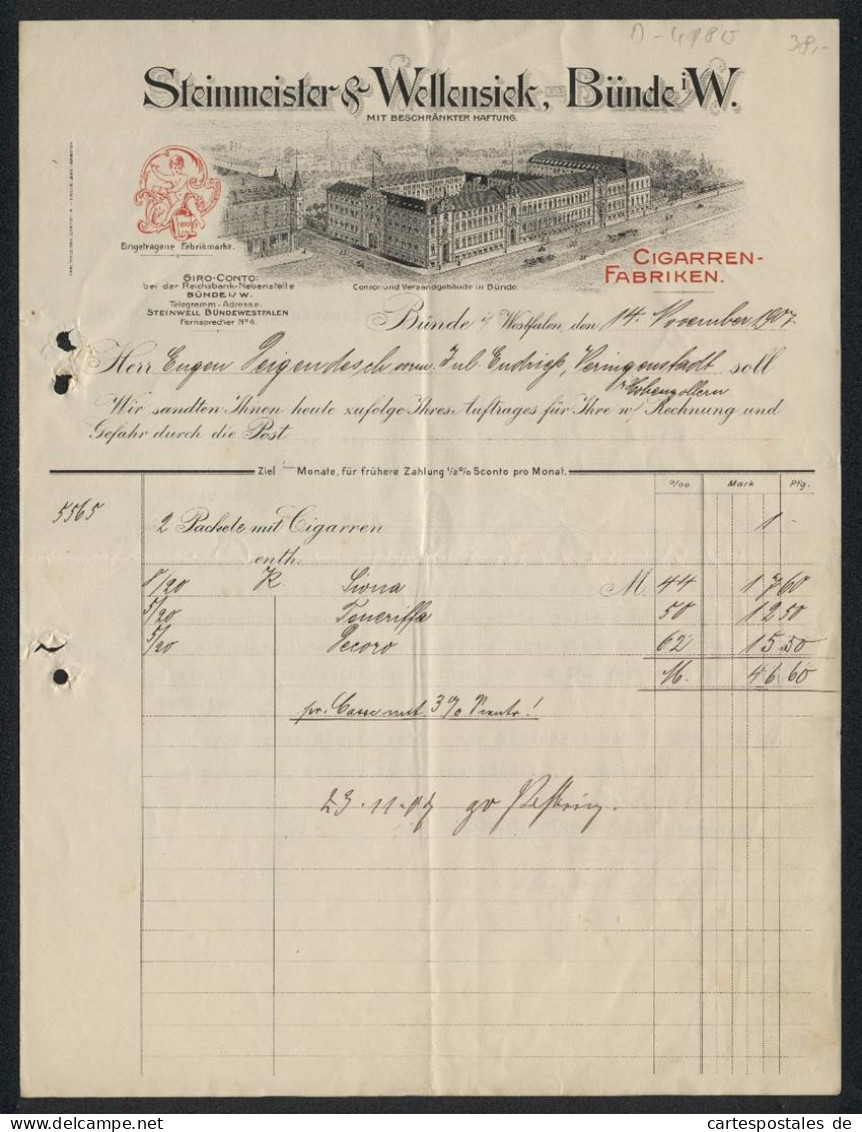 D-4980
38,-
Steinmeister & Wellensiek, Bünde i/W.
MIT BESCHRÄNKTER HAFTUNG.
Eingetragene Fabrikmarke.
GIRO-CONTO:
bei der Reichsbank-Nebenstelle
BÜNDE i/W.
Telegramm-Adresse.
STEINWELL BÜNDEWESTFALEN
Fernsprecher No 6.
Contor und Versandgebäude in Bünde.
CIGARREN-
FABRIKEN.
Bünde i/ Westfalen, den 14. November 1907.
Herr Eugen Deigendesch Jul. Endriß, Veringenstadt soll
Hohenzollern
Wir sandten Ihnen heute zufolge Ihres Auftrages für Ihre w/ Rechnung und
Gefahr durch die Post
Ziel Monate, für frühere Zahlung 1/2% Sconto pro Monat.
o/oo Mark Pfg.
5565 2 Packete mit Cigarren 1 -
enth.
8/20 K. Siona M. 44 17 60
5/20 Teneriffa 50 12 50
5/20 Pecoro 62 15 50
M. 46 60
pr. Casse mit 3% !
23-11-07
www.cartespostales.de